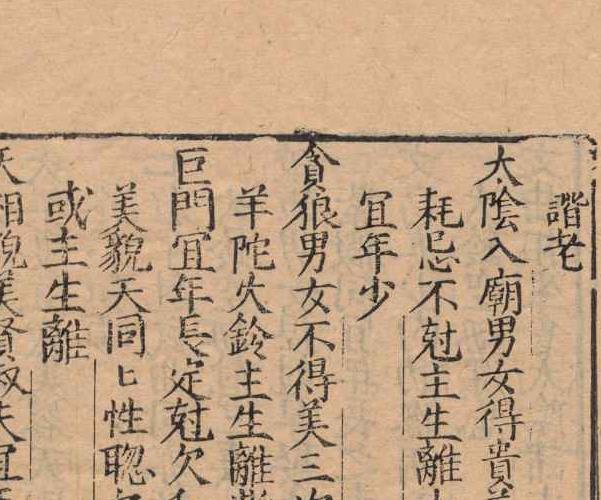 諧老
大陰入廟男女得貴
耗忌不尅主生離
宜年少
貪狼男女不得美三
羊陀火鈴主生離
巨門宜年長定尅欠
美貌天同匕性聦
或主生離
天相貌美賢淑夫宜